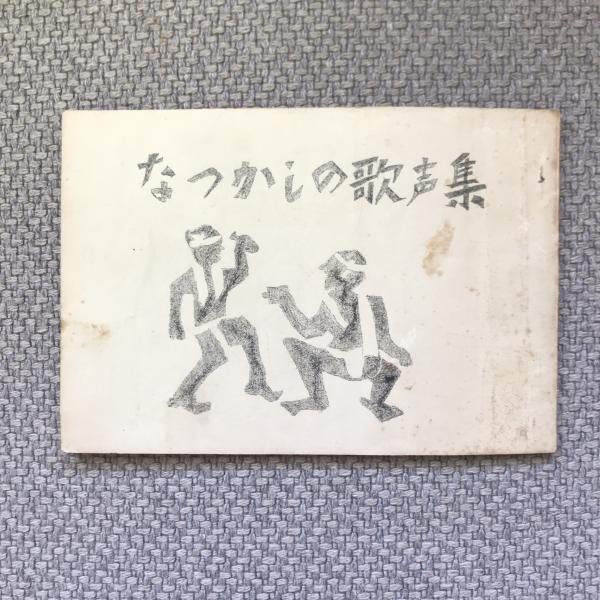 なつかしの歌声集